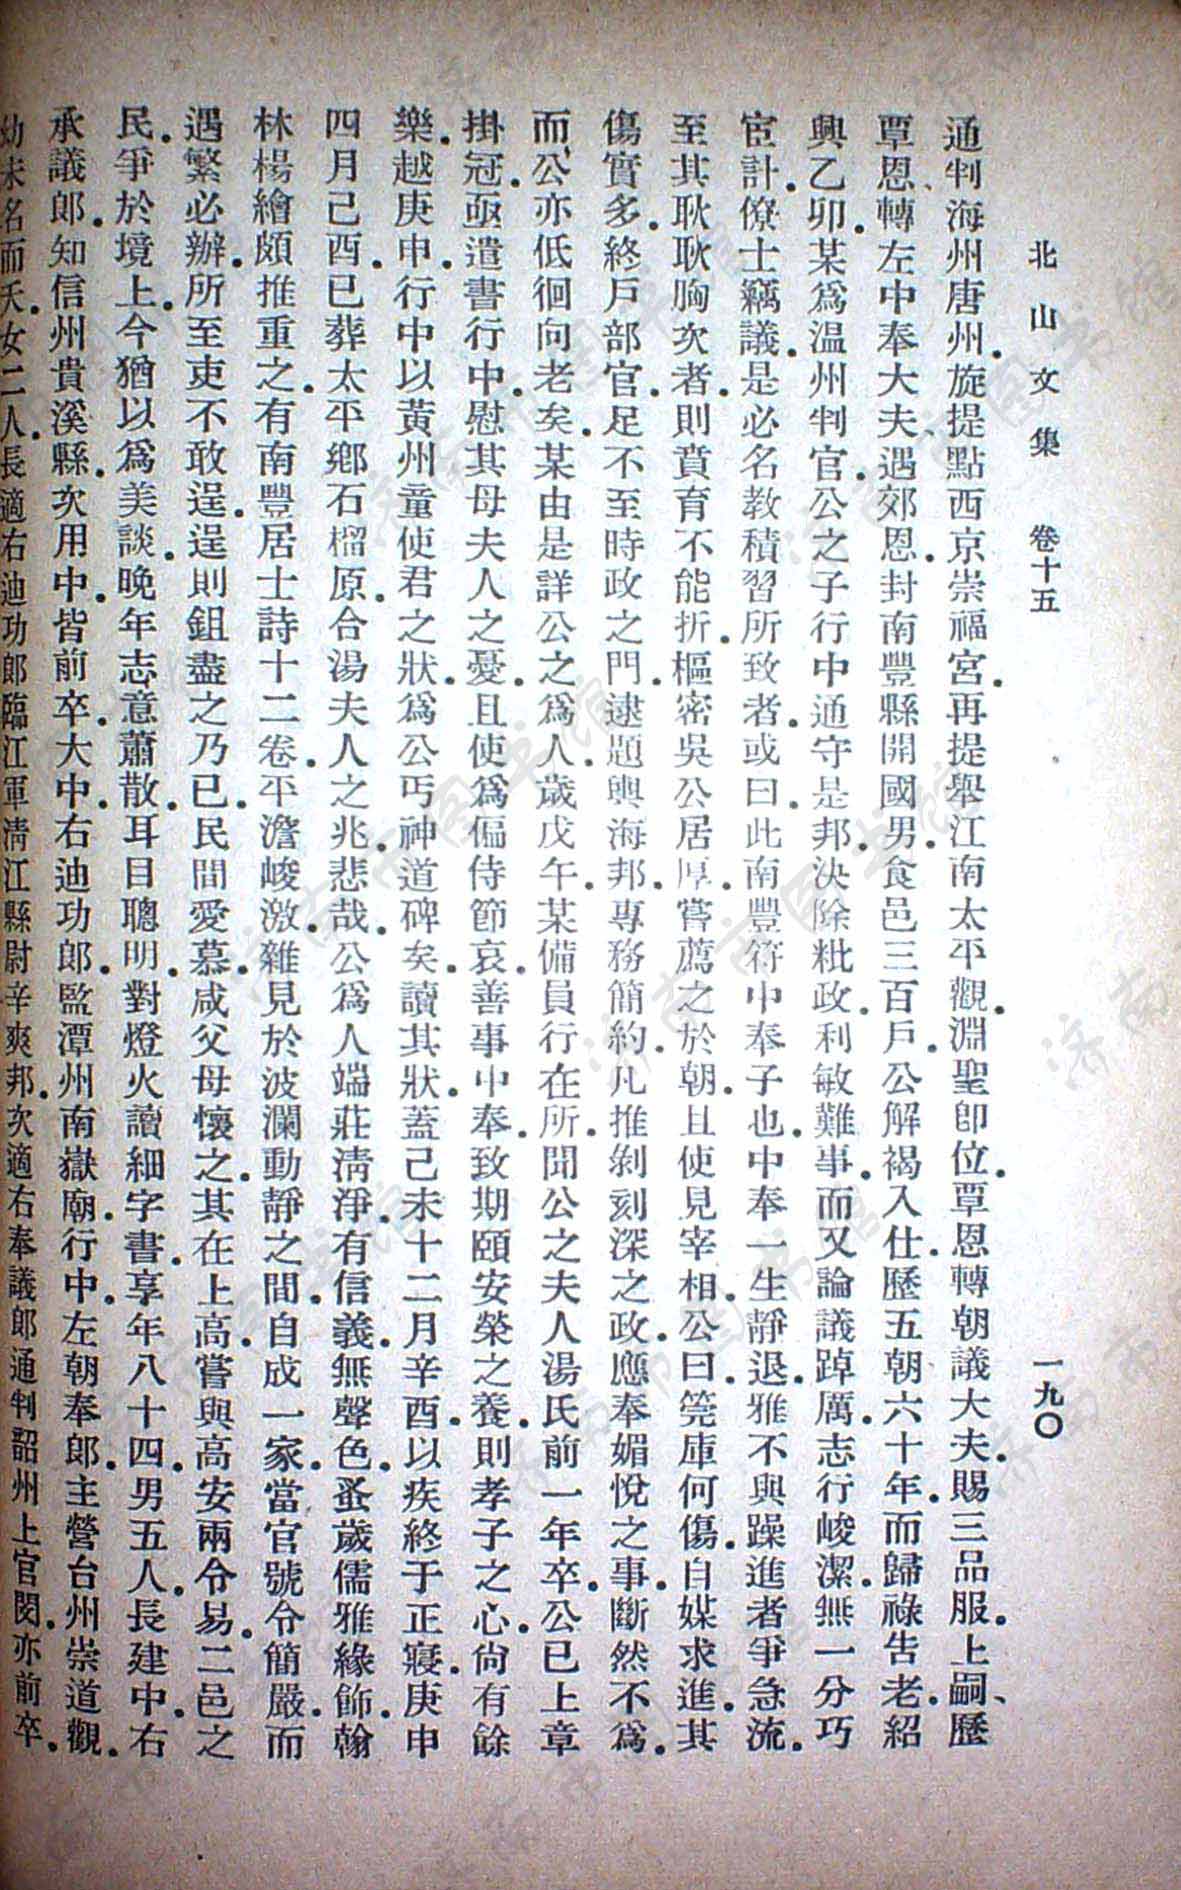 北山文集 卷十五 一九〇
通判海州唐州.旋提點西京崇福宮.再提舉江南太平觀.淵聖卽位.覃恩轉朝議大夫.賜三品服.上嗣、歷
覃恩、轉左中奉大夫、遇郊恩.封南豐縣開國男.食邑三百戶.公解褐入仕.歷五朝六十年.而歸祿告老.紹
興乙卯.某爲溫州判官.公之子行中通守是邦.決除粃政.利敏難事.而又論議踔厲.志行峻潔.無一分巧
宦計.僚士竊議.是必名教積習所致者.或曰.此南豐符中奉子也.中奉一生靜退.雅不與躁進者爭急流.
至其耿耿胸次者.則賁育不能折.樞密吳公居厚.嘗薦之於朝.且使見宰相.公曰.筦庫何傷.自媒求進.其
傷實多.終戶部官.足不至時政之門.逮題輿海邦.專務簡約.凡推剝刻深之政.應奉媚悅之事.斷然不爲.
而公亦低徊向老矣.某由是詳公之爲人.歲戊午.某備員行在所.聞公之夫人湯氏前一年卒.公已上章
掛冠.亟遣書行中.慰其母夫人之憂.且使爲偏侍節哀.善事中奉.致期頤安榮之養.則孝子之心.尙有餘
樂.越庚申.行中以黃州童使君之狀.爲公丐神道碑矣.讀其狀.蓋己未十二月辛酉.以疾終于正寢.庚申
四月己酉.已葬太平鄉石榴原.合湯夫人之兆.悲哉.公爲人端莊淸淨.有信義.無聲色.蚤歲儒雅緣飾.翰
林楊繪頗推重之.有南豐居士詩十二卷.平澹峻激.雜見於波瀾動靜之間.自成一家.當官號令簡嚴.而
遇繁必辦.所至吏不敢逞.逞則鉏盡之乃已.民間愛慕.咸父母懷之.其在上高.嘗與高安兩令易.二邑之
民.爭於境上.今猶以爲美談.晚年志意蕭散.耳目聰明.對燈火讀細字書.享年八十四.男五人.長建中.右
承議郎.知信州貴溪縣.次用中.皆前卒.大中.右迪功郎.監潭州南嶽廟.行中.左朝奉郎.主營台州崇道觀.
幼未名而夭.女二人.長適右迪功郎臨江軍淸江縣尉辛爽邦.次適右奉議郎通判韶州上官閔.亦前卒.